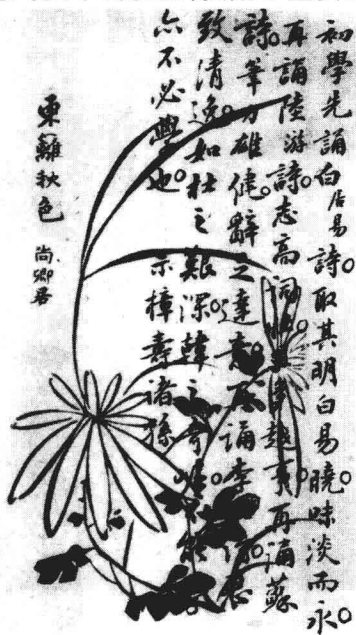 初學先誦白居易詩。取其明白易曉。味淡而永。
再誦陸游詩。志高詞越事再誦蘇
詩。筆力雄健。辭足達意。誦李思
致清逸。如杜之艱深。韓之奇。能
亦不必學也。示樟壽諸孫
東籬秋色
尚卿君